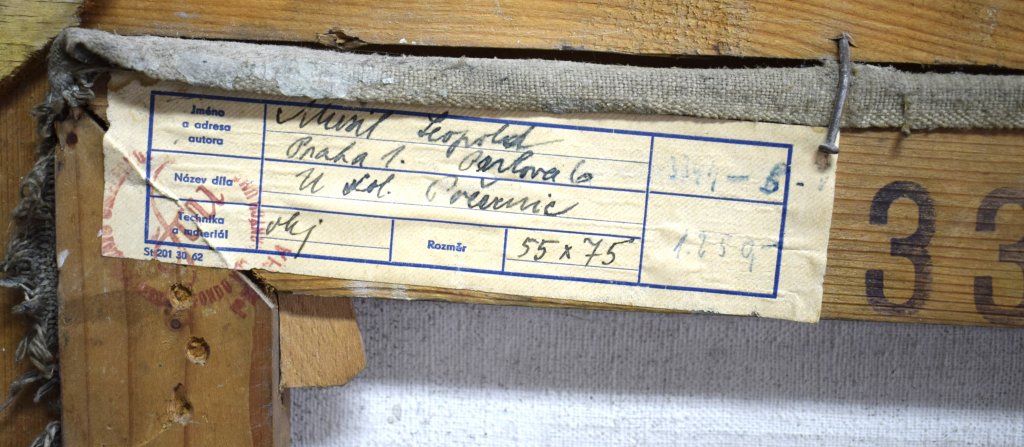 Jméno
a adresa
autora
Musil Leopold
Praha 1. Pavlova 6
Název díla
U Dol. Počernic
Technika
a materiál
olej
Rozměr
55 x 75
1.259
St 201 30 62
33